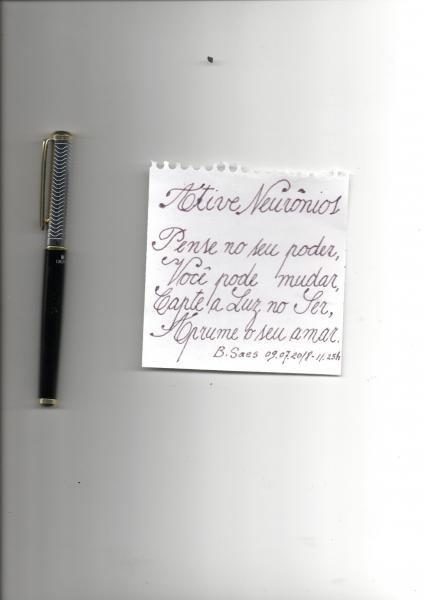 Ative Neurônios
Pense no seu poder,
Você pode mudar,
Capte a Luz no Ser,
Aprume o seu amar.
B. Saes 09.07.2018-11.25h